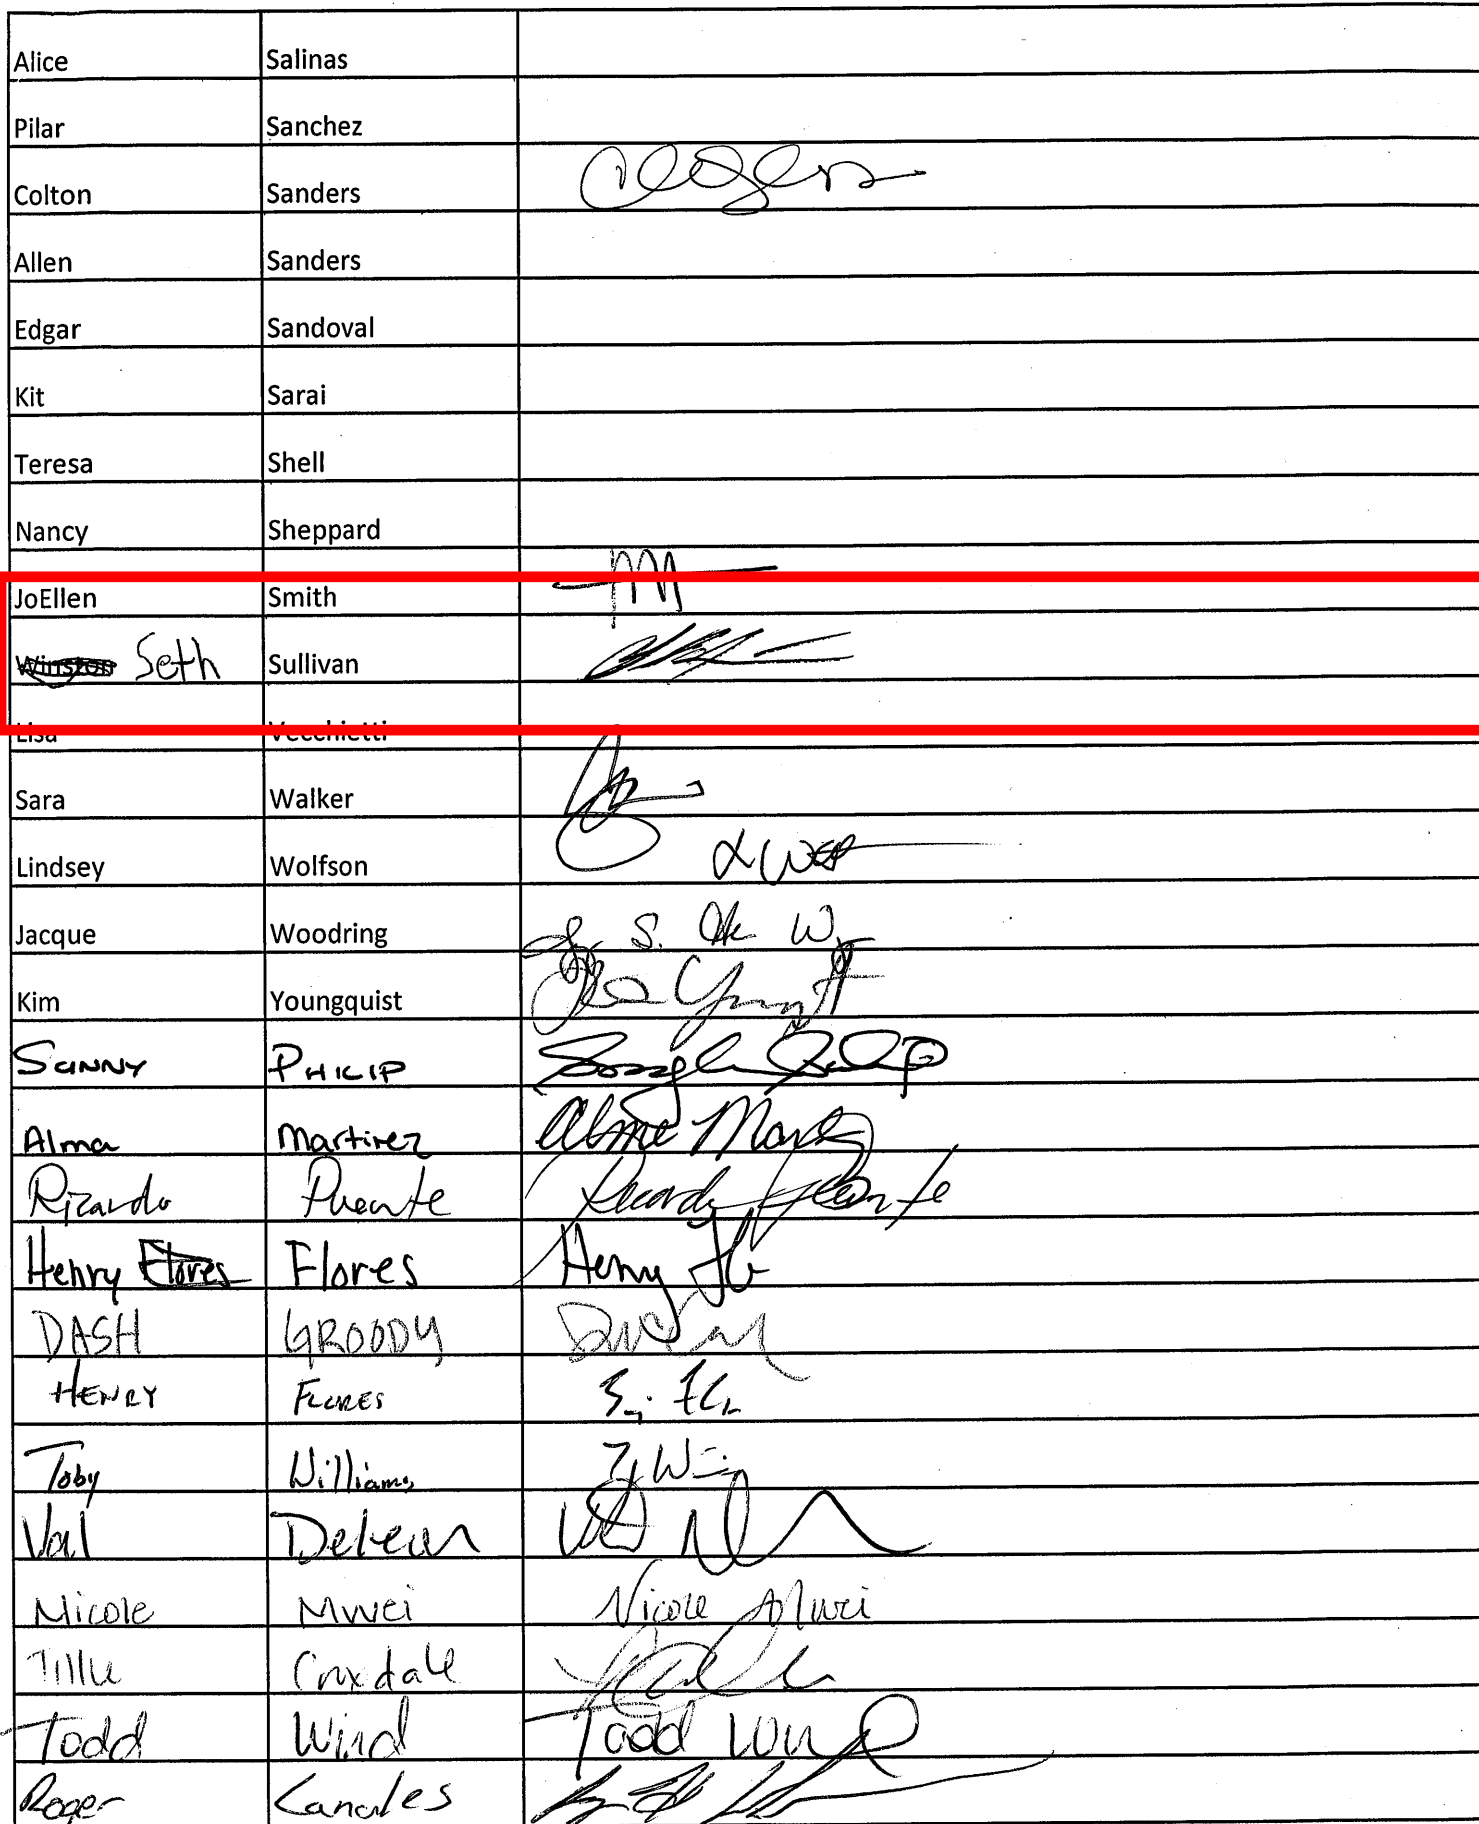 Alice Salinas
Pilar Sanchez
Colton Sanders
Allen Sanders
Edgar Sandoval
Kit Sarai
Teresa Shell
Nancy Sheppard
JoEllen Smith
Winston Seth Sullivan
Lisa Vecchietti
Sara Walker
Lindsey Wolfson
Jacque Woodring
Kim Youngquist
Sunny Philip
Alma Martinez Alma
Ricardo Puente Ricardo Puente
Henry Flores Flores Henry
DASH GROODY
HENRY FLORES
Toby Williams
Val
Nicole Mwei Nicole Mwei
Croxdale
Todd Wind Todd
Roger Canales